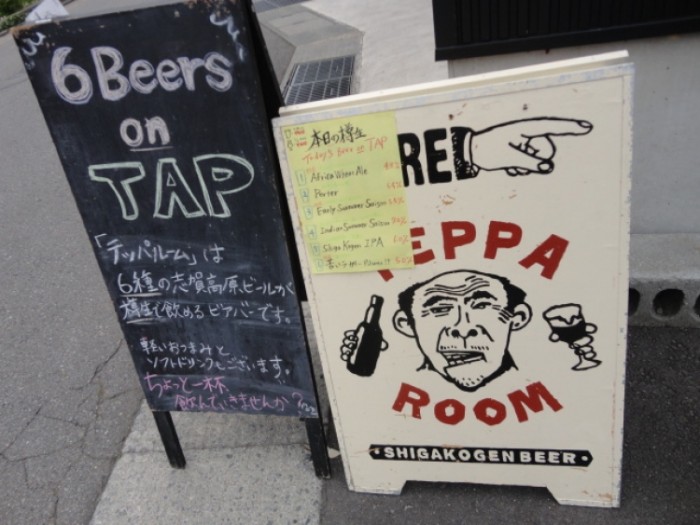 6 Beers
on
TAP
「テッパルーム」は
6種の志賀高原ビールが
樽生で飲めるビアバーです。
軽いおつまみと
ソフトドリンクもございます。
ちょっと一杯
飲んでいきませんか
本日の樽生
Today's Beer on TAP
1 Africa Ale
2 Porter
3 Early Summer Saison
4 Indian Summer Saison
5 Shiga Kogen IPA
RED
TEPPA
ROOM
SHIGAKOGEN BEER